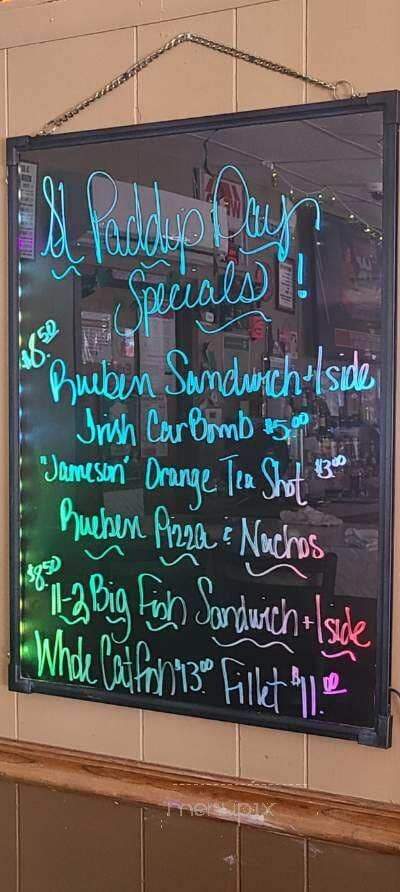 St Paddys Day
Specials!
$8.50
Rueben Sandwich + 1 side
Irish Car Bomb $5.00
"Jameson" Orange Tea Shot $3.00
Rueben Pizza & Nachos
$8.50
11-2 Big Fish Sandwich + 1 side
Whole Catfish $13.00 Fillet $11.00
menupix